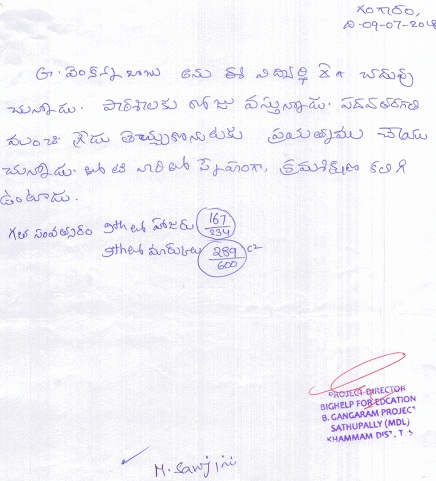 గంగారం,
ది-09-07-2018
G. వెంకన్న బాబు అను ఈ విద్యార్థి 10వ చదువు
చున్నాడు. పాఠశాలకు రోజు వస్తున్నాడు. పదవతరగతి
మంచి గ్రేడు తెచ్చుకొనుటకు ప్రయత్నము చేయు
చున్నాడు. తోటి వారితో స్నేహంగా, క్రమశిక్షణ కలిగి
ఉంటాడు.
గత సంవత్సరం 9thలో హాజరు 167/234
9thలో మార్కులు 289/600 C2
PROJECT DIRECTOR
BIGHELP FOR EDCATION
B. GANGARAM PROJECT
SATHUPALLY (MDL)
KHAMMAM DIST. T.S
M. Sarojini